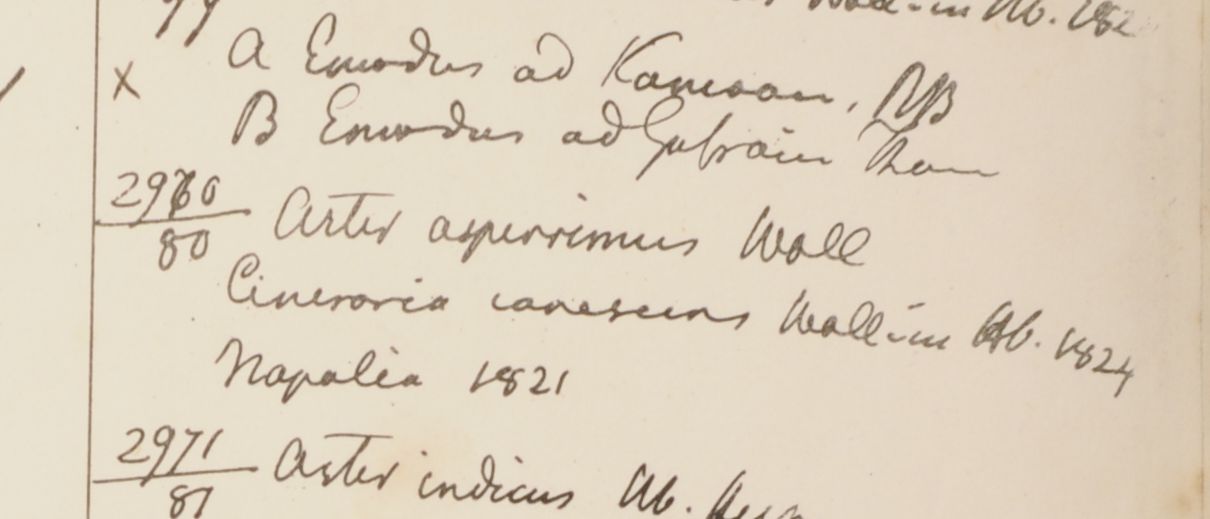 Wall-in Hb. 182
A Emodus ad Kamoon, RB
B Emodus ad
2970/80 Aster asperrimus Wall
Cineraria canescens Wall-in Hb. 1824
Napalia 1821
2971/81 Aster indicus Hb.